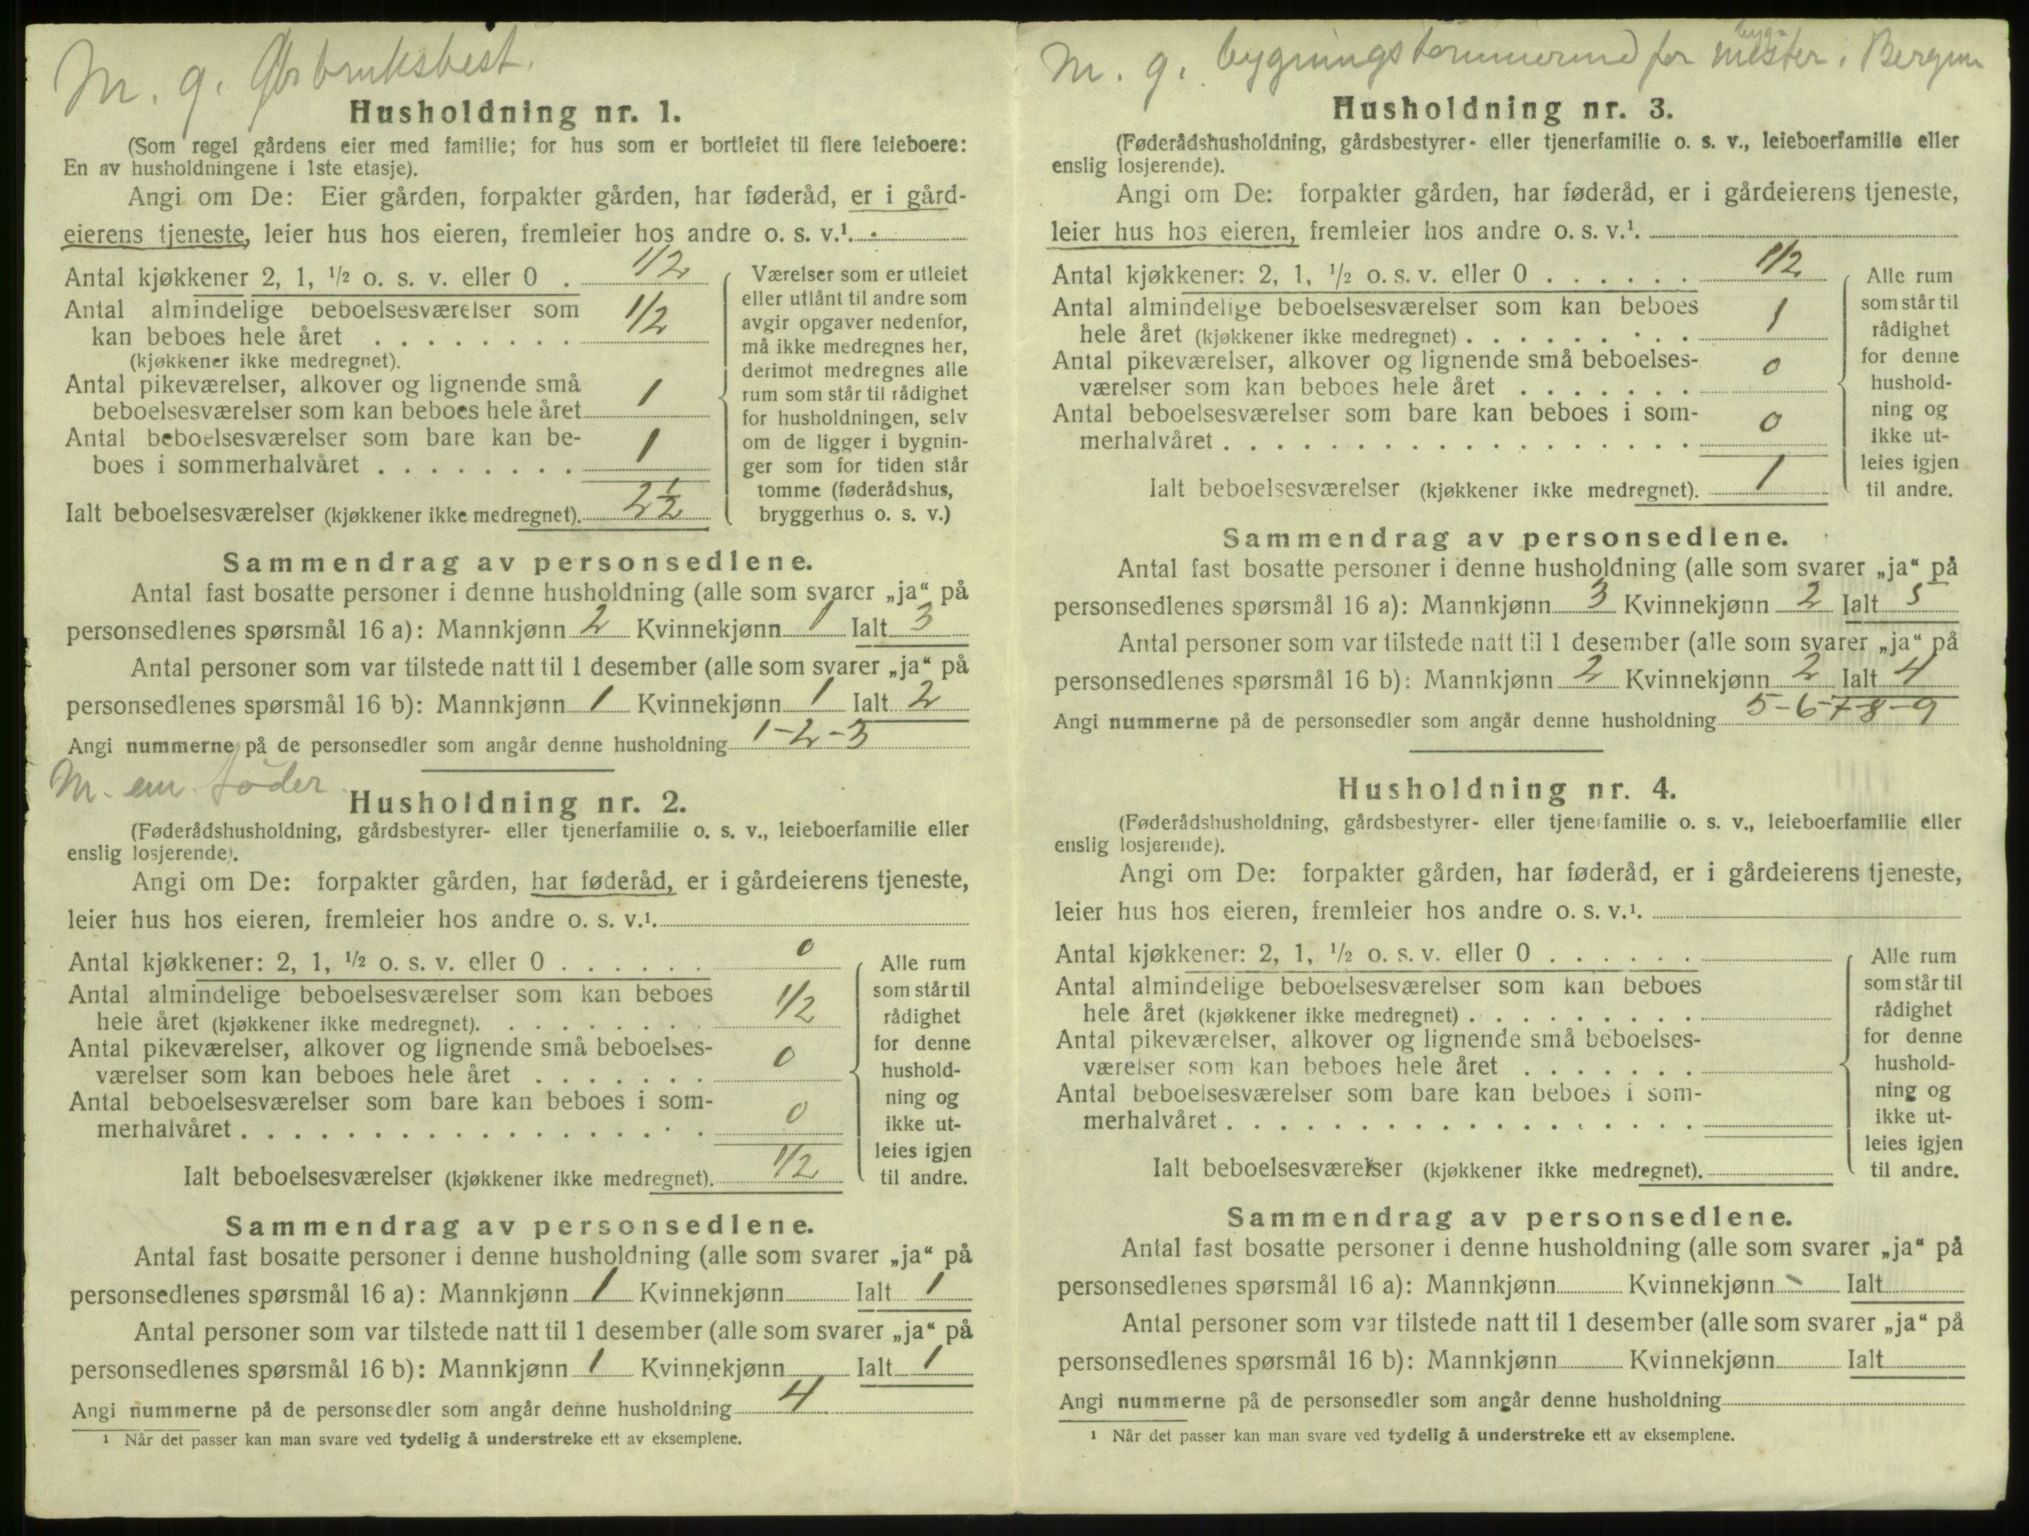 M. g. Gårbruksbest.
Husholdning nr. 1.
(Som regel gårdens eier med familie; for hus som er bortleiet til flere leieboere:
En av husholdningene i 1ste etasje).
Angi om De: Eier gården, forpakter gården, har føderåd, er i gård-
eierens tjeneste, leier hus hos eieren, fremleier hos andre o. s. v.¹.
Antal kjøkkener 2, 1, ½ o. s. v. eller 0 . 1/2
Antal almindelige beboelsesværelser som
kan beboes hele året . . . . . . . . 1/2
(kjøkkener ikke medregnet).
Antal pikeværelser, alkover og lignende små
beboelsesværelser som kan beboes hele året 1
Antal beboelsesværelser som bare kan be-
boes i sommerhalvåret . . . . . . . . 1
Ialt beboelsesværelser (kjøkkener ikke medregnet). 2 1/2
Værelser som er utleiet
eller utlånt til andre som
avgir opgaver nedenfor,
må ikke medregnes her,
derimot medregnes alle
rum som står til rådighet
for husholdningen, selv
om de ligger i bygnin-
ger som for tiden står
tomme (føderådshus,
bryggerhus o. s. v.)
Sammendrag av personsedlene.
Antal fast bosatte personer i denne husholdning (alle som svarer „ja“ på
personsedlenes spørsmål 16 a): Mannkjønn 2 Kvinnekjønn 1 Ialt 3
Antal personer som var tilstede natt til 1 desember (alle som svarer „ja“ på
personsedlenes spørsmål 16 b): Mannkjønn 1 Kvinnekjønn 1 Ialt 2
Angi nummerne på de personsedler som angår denne husholdning 1-2-3
M. em. føder.
Husholdning nr. 2.
(Føderådshusholdning, gårdsbestyrer- eller tjenerfamilie o. s. v., leieboerfamilie eller
enslig losjerende).
Angi om De: forpakter gården, har føderåd, er i gårdeierens tjeneste,
leier hus hos eieren, fremleier hos andre o. s. v.¹.
Antal kjøkkener: 2, 1, ½ o. s. v. eller 0 . . . . . . 0
Antal almindelige beboelsesværelser som kan beboes
hele året (kjøkkener ikke medregnet). . . . . . . . . 1/2
Antal pikeværelser, alkover og lignende små beboelses-
værelser som kan beboes hele året . . . . . . . 0
Antal beboelsesværelser som bare kan beboes i som-
merhalvåret . . . . . . . . . . . . . . . . . . 0
Ialt beboelsesværelser (kjøkkener ikke medregnet). 1/2
Alle rum
som står til
rådighet
for denne
hushold-
ning og
ikke ut-
leies igjen
til andre.
Sammendrag av personsedlene.
Antal fast bosatte personer i denne husholdning (alle som svarer „ja“ på
personsedlenes spørsmål 16 a): Mannkjønn 1 Kvinnekjønn Ialt 1
Antal personer som var tilstede natt til 1 desember (alle som svarer „ja“ på
personsedlenes spørsmål 16 b): Mannkjønn 1 Kvinnekjønn Ialt 1
Angi nummerne på de personsedler som angår denne husholdning 4
¹ Når det passer kan man svare ved tydelig å understreke ett av eksemplene.
M. g. bygningstømmermand for bygn. mester i Bergen
Husholdning nr. 3.
(Føderådshusholdning, gårdsbestyrer- eller tjenerfamilie o. s. v., leieboerfamilie eller
enslig losjerende).
Angi om De: forpakter gården, har føderåd, er i gårdeierens tjeneste,
leier hus hos eieren, fremleier hos andre o. s. v.¹.
Antal kjøkkener: 2, 1, ½ o. s. v. eller 0 . . . . . . 1/2
Antal almindelige beboelsesværelser som kan beboes
hele året (kjøkkener ikke medregnet) . . . . . . . . . 1
Antal pikeværelser, alkover og lignende små beboelses-
værelser som kan beboes hele året . . . . . . . 0
Antal beboelsesværelser som bare kan beboes i som-
merhalvåret . . . . . . . . . . . . . . . . . . 0
Ialt beboelsesværelser (kjøkkener ikke medregnet). 1
Alle rum
som står til
rådighet
for denne
hushold-
ning og
ikke ut-
leies igjen
til andre.
Sammendrag av personsedlene.
Antal fast bosatte personer i denne husholdning (alle som svarer „ja“ på
personsedlenes spørsmål 16 a): Mannkjønn 3 Kvinnekjønn 2 Ialt 5
Antal personer som var tilstede natt til 1 desember (alle som svarer „ja“ på
personsedlenes spørsmål 16 b): Mannkjønn 2 Kvinnekjønn 2 Ialt 4
Angi nummerne på de personsedler som angår denne husholdning 5-6-7-8-9
Husholdning nr. 4.
(Føderådshusholdning, gårdsbestyrer- eller tjenerfamilie o. s. v., leieboerfamilie eller
enslig losjerende).
Angi om De: forpakter gården, har føderåd, er i gårdeierens tjeneste,
leier hus hos eieren, fremleier hos andre o. s. v.¹.
Antal kjøkkener: 2, 1, ½ o. s. v. eller 0 . . . . . .
Antal almindelige beboelsesværelser som kan beboes
hele året (kjøkkener ikke medregnet) . . . . . . . . .
Antal pikeværelser, alkover og lignende små beboelses-
værelser som kan beboes hele året . . . . . . .
Antal beboelsesværelser som bare kan beboes i som-
merhalvåret . . . . . . . . . . . . . . . . . .
Ialt beboelsesværelser (kjøkkener ikke medregnet).
Alle rum
som står til
rådighet
for denne
hushold-
ning og
ikke ut-
leies igjen
til andre.
Sammendrag av personsedlene.
Antal fast bosatte personer i denne husholdning (alle som svarer „ja“ på
personsedlenes spørsmål 16 a): Mannkjønn Kvinnekjønn Ialt
Antal personer som var tilstede natt til 1 desember (alle som svarer „ja“ på
personsedlenes spørsmål 16 b): Mannkjønn Kvinnekjønn Ialt
Angi nummerne på de personsedler som angår denne husholdning
¹ Når det passer kan man svare ved tydelig å understreke ett av eksemplene.